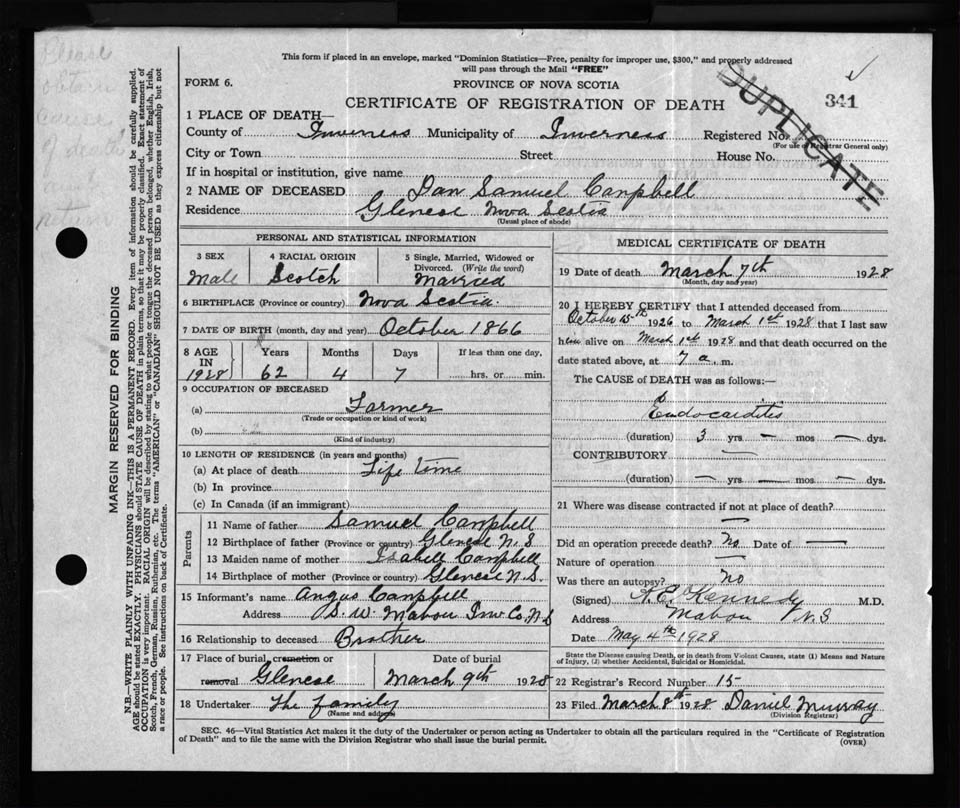 Please
obtain
cause
of death
and
return
MARGIN RESERVED FOR BINDING
N.B.—WRITE PLAINLY WITH UNFADING INK—THIS IS A PERMANENT RECORD. Every item of information should be carefully supplied.
AGE should be stated EXACTLY. PHYSICIANS should STATE CAUSE OF DEATH in plain terms, so that it may be properly classified. Exact statement of
OCCUPATION is very important. RACIAL ORIGIN will be described by stating to what people or tongue the deceased person belonged, whether English, Irish,
Scotch, French, German, Russian, Ruthenian, etc. The terms "AMERICAN" or "CANADIAN" SHOULD NOT BE USED as they express citizenship but not
a race or people. See instructions on back of Certificate.
This form if placed in an envelope, marked "Dominion Statistics—Free, penalty for improper use, $300," and properly addressed
will pass through the Mail "FREE"
FORM 6. PROVINCE OF NOVA SCOTIA
CERTIFICATE OF REGISTRATION OF DEATH
DUPLICATE
341
1 PLACE OF DEATH—
County of Inverness Municipality of Inverness Registered No.
(For use of Registrar General only)
City or Town Street House No.
If in hospital or institution, give name
2 NAME OF DECEASED Dan Samuel Canpbell
Residence Glencoe Nova Scotia
(Usual place of abode)
PERSONAL AND STATISTICAL INFORMATION
3 SEX 4 RACIAL ORIGIN 5 Single, Married, Widowed or
Divorced. (Write the word)
Male Scotch Married
6 BIRTHPLACE (Province or country) Nova Scotia
7 DATE OF BIRTH (month, day and year) October 1866
8 AGE Years Months Days If less than one day,
IN
1928 62 4 7 hrs. or min.
9 OCCUPATION OF DECEASED
(a) Farmer
(Trade or occupation or kind of work)
(b)
(Kind of industry)
10 LENGTH OF RESIDENCE (in years and months)
(a) At place of death Life time
(b) In province
(c) In Canada (if an immigrant)
Parents
11 Name of father Samuel Canpbell
12 Birthplace of father (Province or country) Glencoe N.S
13 Maiden name of mother Isabell Campbell
14 Birthplace of mother (Province or country) Glencoe N.S.
15 Informant's name Angus Canpbell
Address S.W. Mabou Inv Co. N.S
16 Relationship to deceased Brother
17 Place of burial cremation or Date of burial
removal Glencoe March 9th 1928
18 Undertaker The family
(Name and address)
MEDICAL CERTIFICATE OF DEATH
19 Date of death March 7th 1928
(Month, day and year)
20 I HEREBY CERTIFY that I attended deceased from
October 15th 1926 to March 1st 1928 that I last saw
him alive on March 1st 1928 and that death occurred on the
date stated above, at 7 a. m.
The CAUSE of DEATH was as follows:—
Endocarditis
(duration) 3 yrs. — mos — dys.
CONTRIBUTORY —
(duration) — yrs. — mos. — dys.
21 Where was disease contracted if not at place of death?
—
Did an operation precede death? No Date of —
Nature of operation —
Was there an autopsy? no
(Signed) Kennedy M.D.
Address Mabou N.S
Date May 4th 1928
State the Disease causing Death, or in death from Violent Causes, state (1) Means and Nature
of Injury, (2) whether Accidental, Suicidal or Homicidal.
22 Registrar's Record Number 15
23 Filed March 8th 1928 Daniel Murray
(Division Registrar)
SEC. 46—Vital Statistics Act makes it the duty of the Undertaker or person acting as Undertaker to obtain all the particulars required in the "Certificate of Registration
of Death" and to file the same with the Division Registrar who shall issue the burial permit.
(OVER)